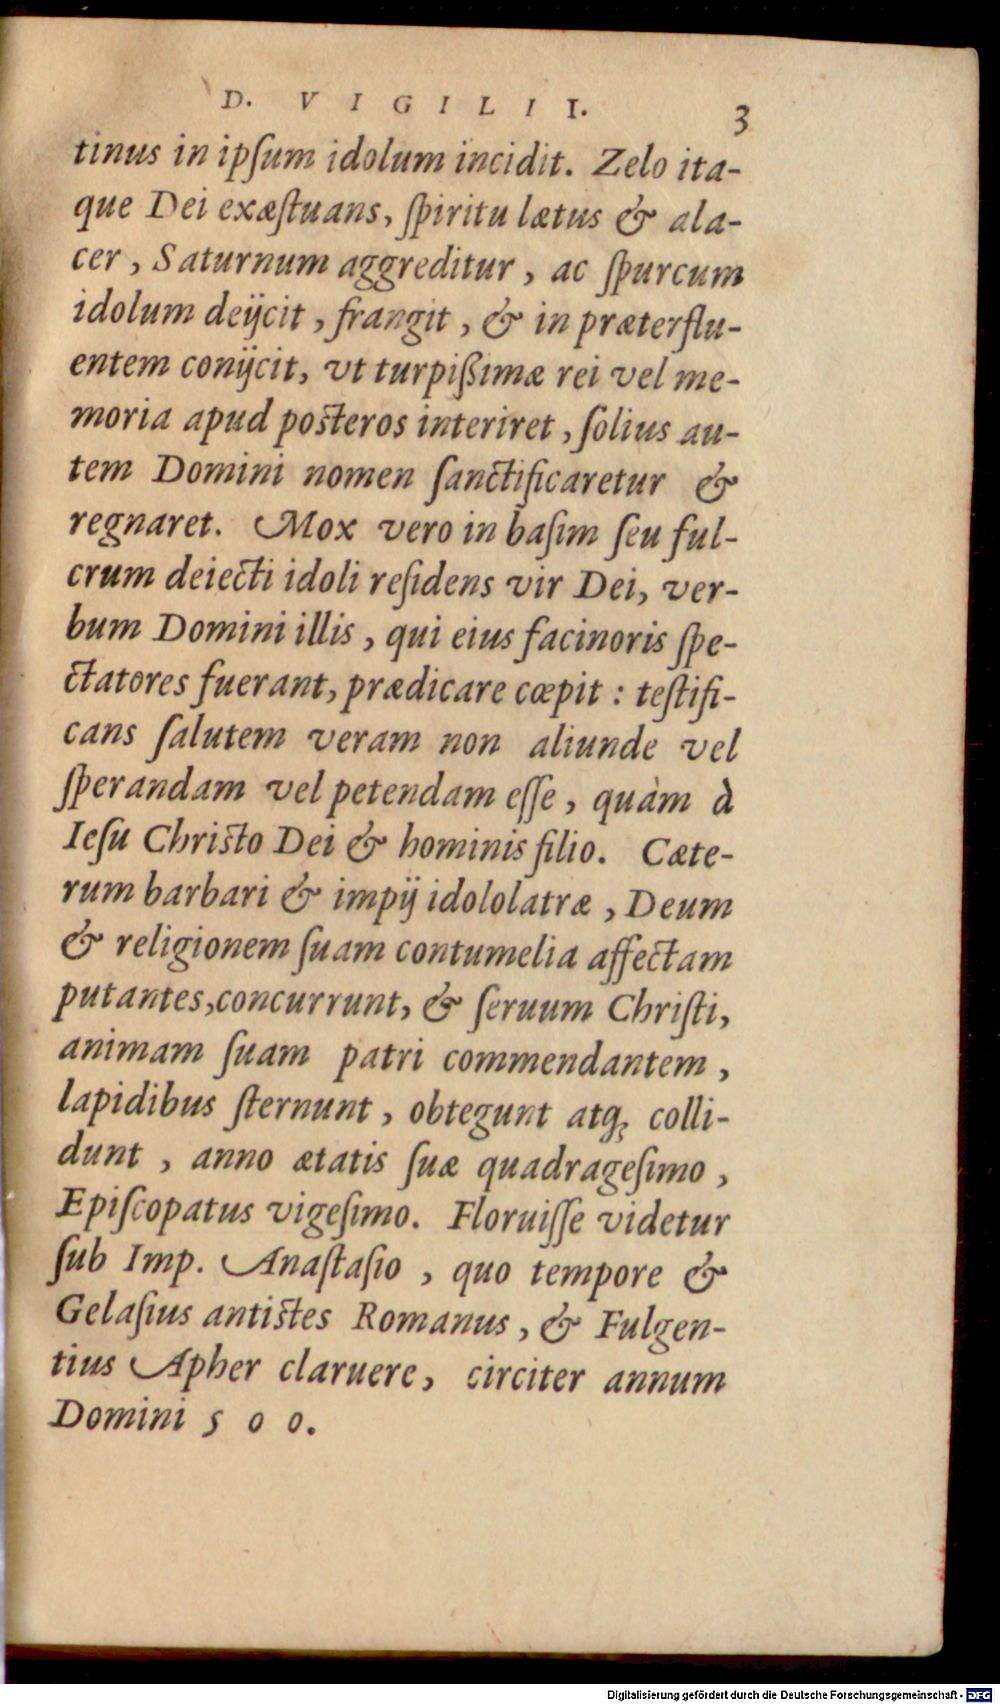 D. VIGILII. 3
tinus in ipſum idolum incidit. Zelo ita-
que Dei exæſtuans, ſpiritu lætus & ala-
cer, Saturnum aggreditur, ac ſpurcum
idolum deijcit, frangit, & in præterflu-
entem conijcit, vt turpißimæ rei vel me-
moria apud posteros interiret, ſolius au-
tem Domini nomen ſanctificaretur &
regnaret. Mox vero in baſim ſeu ful-
crum deiecti idoli reſidens vir Dei, ver-
bum Domini illis, qui eius facinoris ſpe-
ctatores fuerant, prædicare cœpit: teſtifi-
cans ſalutem veram non aliunde vel
ſperandam vel petendam eſſe, quàm à
Ieſu Christo Dei & hominis filio. Cæte-
rum barbari & impij idololatræ, Deum
& religionem ſuam contumelia affectam
putantes, concurrunt, & ſeruum Chriſti,
animam ſuam patri commendantem,
lapidibus ſternunt, obtegunt atq; colli-
dunt, anno ætatis ſuæ quadrageſimo,
Epiſcopatus vigeſimo. Floruiſſe videtur
ſub Imp. Anaſtaſio, quo tempore &
Gelaſius antistes Romanus, & Fulgen-
tius Apher claruere, circiter annum
Domini 500.
Digitalisierung gefördert durch die Deutsche Forschungsgemeinschaft - DFG